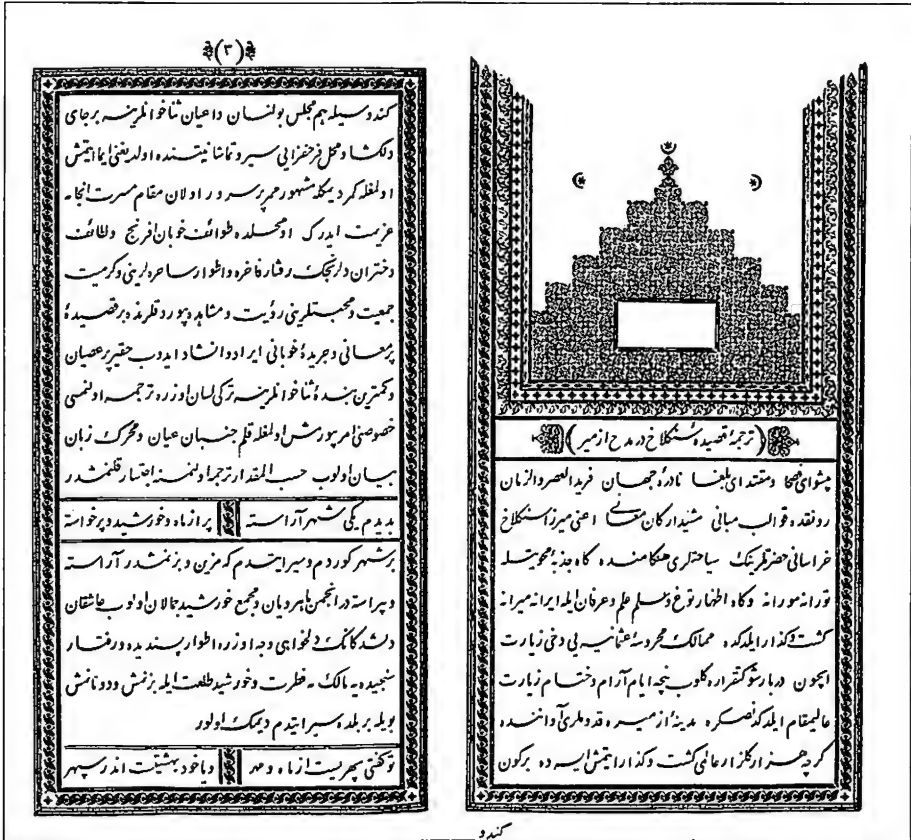 (ترجمۀ قصیدۀ سنكلاخ در مدح ازمیر)
پیشوای فصحا ومقتدای بلغا نادرۀ جهان فریدالعصر والزمان
رونقده قوالب مبانی مشیدارکان معانی اعنی میرزا سنکلاخ
خراسانی حضرتلرینک سیاحتلری هنکامنده کاه جذبۀ محویتله
تورانه مورانه وکاه اظهار توغ وسلم علم وعرفان ایله ایرانه میرانه
کشت وکذار ایلدکده ممالک محروسۀ عثمانیه یی دخی زیارت
ایچون دربار شوکتقراره کلوب نیچه ایام آرام وختام زیارت
عالیمقام ایلدکدنصکره مدینۀ ازمیره قدوملری آواننده
کرچه هزار کلزار عالمی کشت وکذار ایتمش ایسه ده برکون
کندو
(٣)
کندوسیله هم مجلس بولنان داعیان ثناخوانلرینه برجای
دلکشا ومحل فرحفزایی سیر وتماشا نیتنده اولدیغنی ایما ایتمش
اولمغله کمر دیمکله مشهور ممر پرسرور اولان مقام مسرت انجامه
عزیمت ایدرک اومحلده طوائف خوبان افرنج ولطائف
دختران دلرنجک رفتار فاخره واطوار ساحره لرینی وکرمیت
جمعیت ومحبتلرینی رؤیت ومشاهده بیوردقلرنده برقصیدۀ
پرمعانی وجریدۀ خوبانی ایراد وانشاد ایدوب حقیر پرعصیان
وکمترین بندۀ ثناخوانلرینه ترکی لسان اوزره ترجمه اولنمسی
خصوصنی امر بیورمش اولمغله قلم جنبان عیان ومحرک زبان
بیان اولوب حسب المقدار ترجمه اولنمسنه ابتدار قلنمشدر
بدیدم یکی شهر آراسته پر از ماه وخورشید وپرخواسته
برشهر کوردم وسیر ایتدم که مزین وبزنمشدر آراسته
وپیراسته در انجمن ماهرویان ومجمع خورشید جمالان اولوب عاشقان
دلشدکانک دلخواهی وجه اوزره اطوار پسندیده ورفتار
سنجیده یه مالک مه فطرت وخورشید طلعت ایله بزنمش ودونانمش
بویله بر بلده سیر ایتدم دیمک اولور
توکفتی سپهریست از ماه ومهر ویاخود بهشتیست اندر سپهر